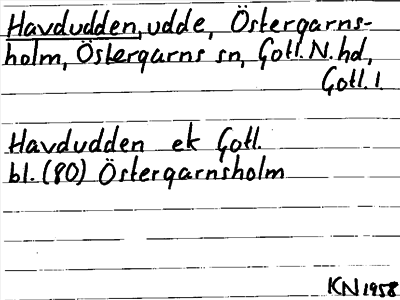 Havdudden, udde, Östergarns-
holm, Östergarns sn, Gotl. N. hd,
Gotl. l.
Havdudden ek Gotl.
bl. (80) Östergarnsholm
KN 1958